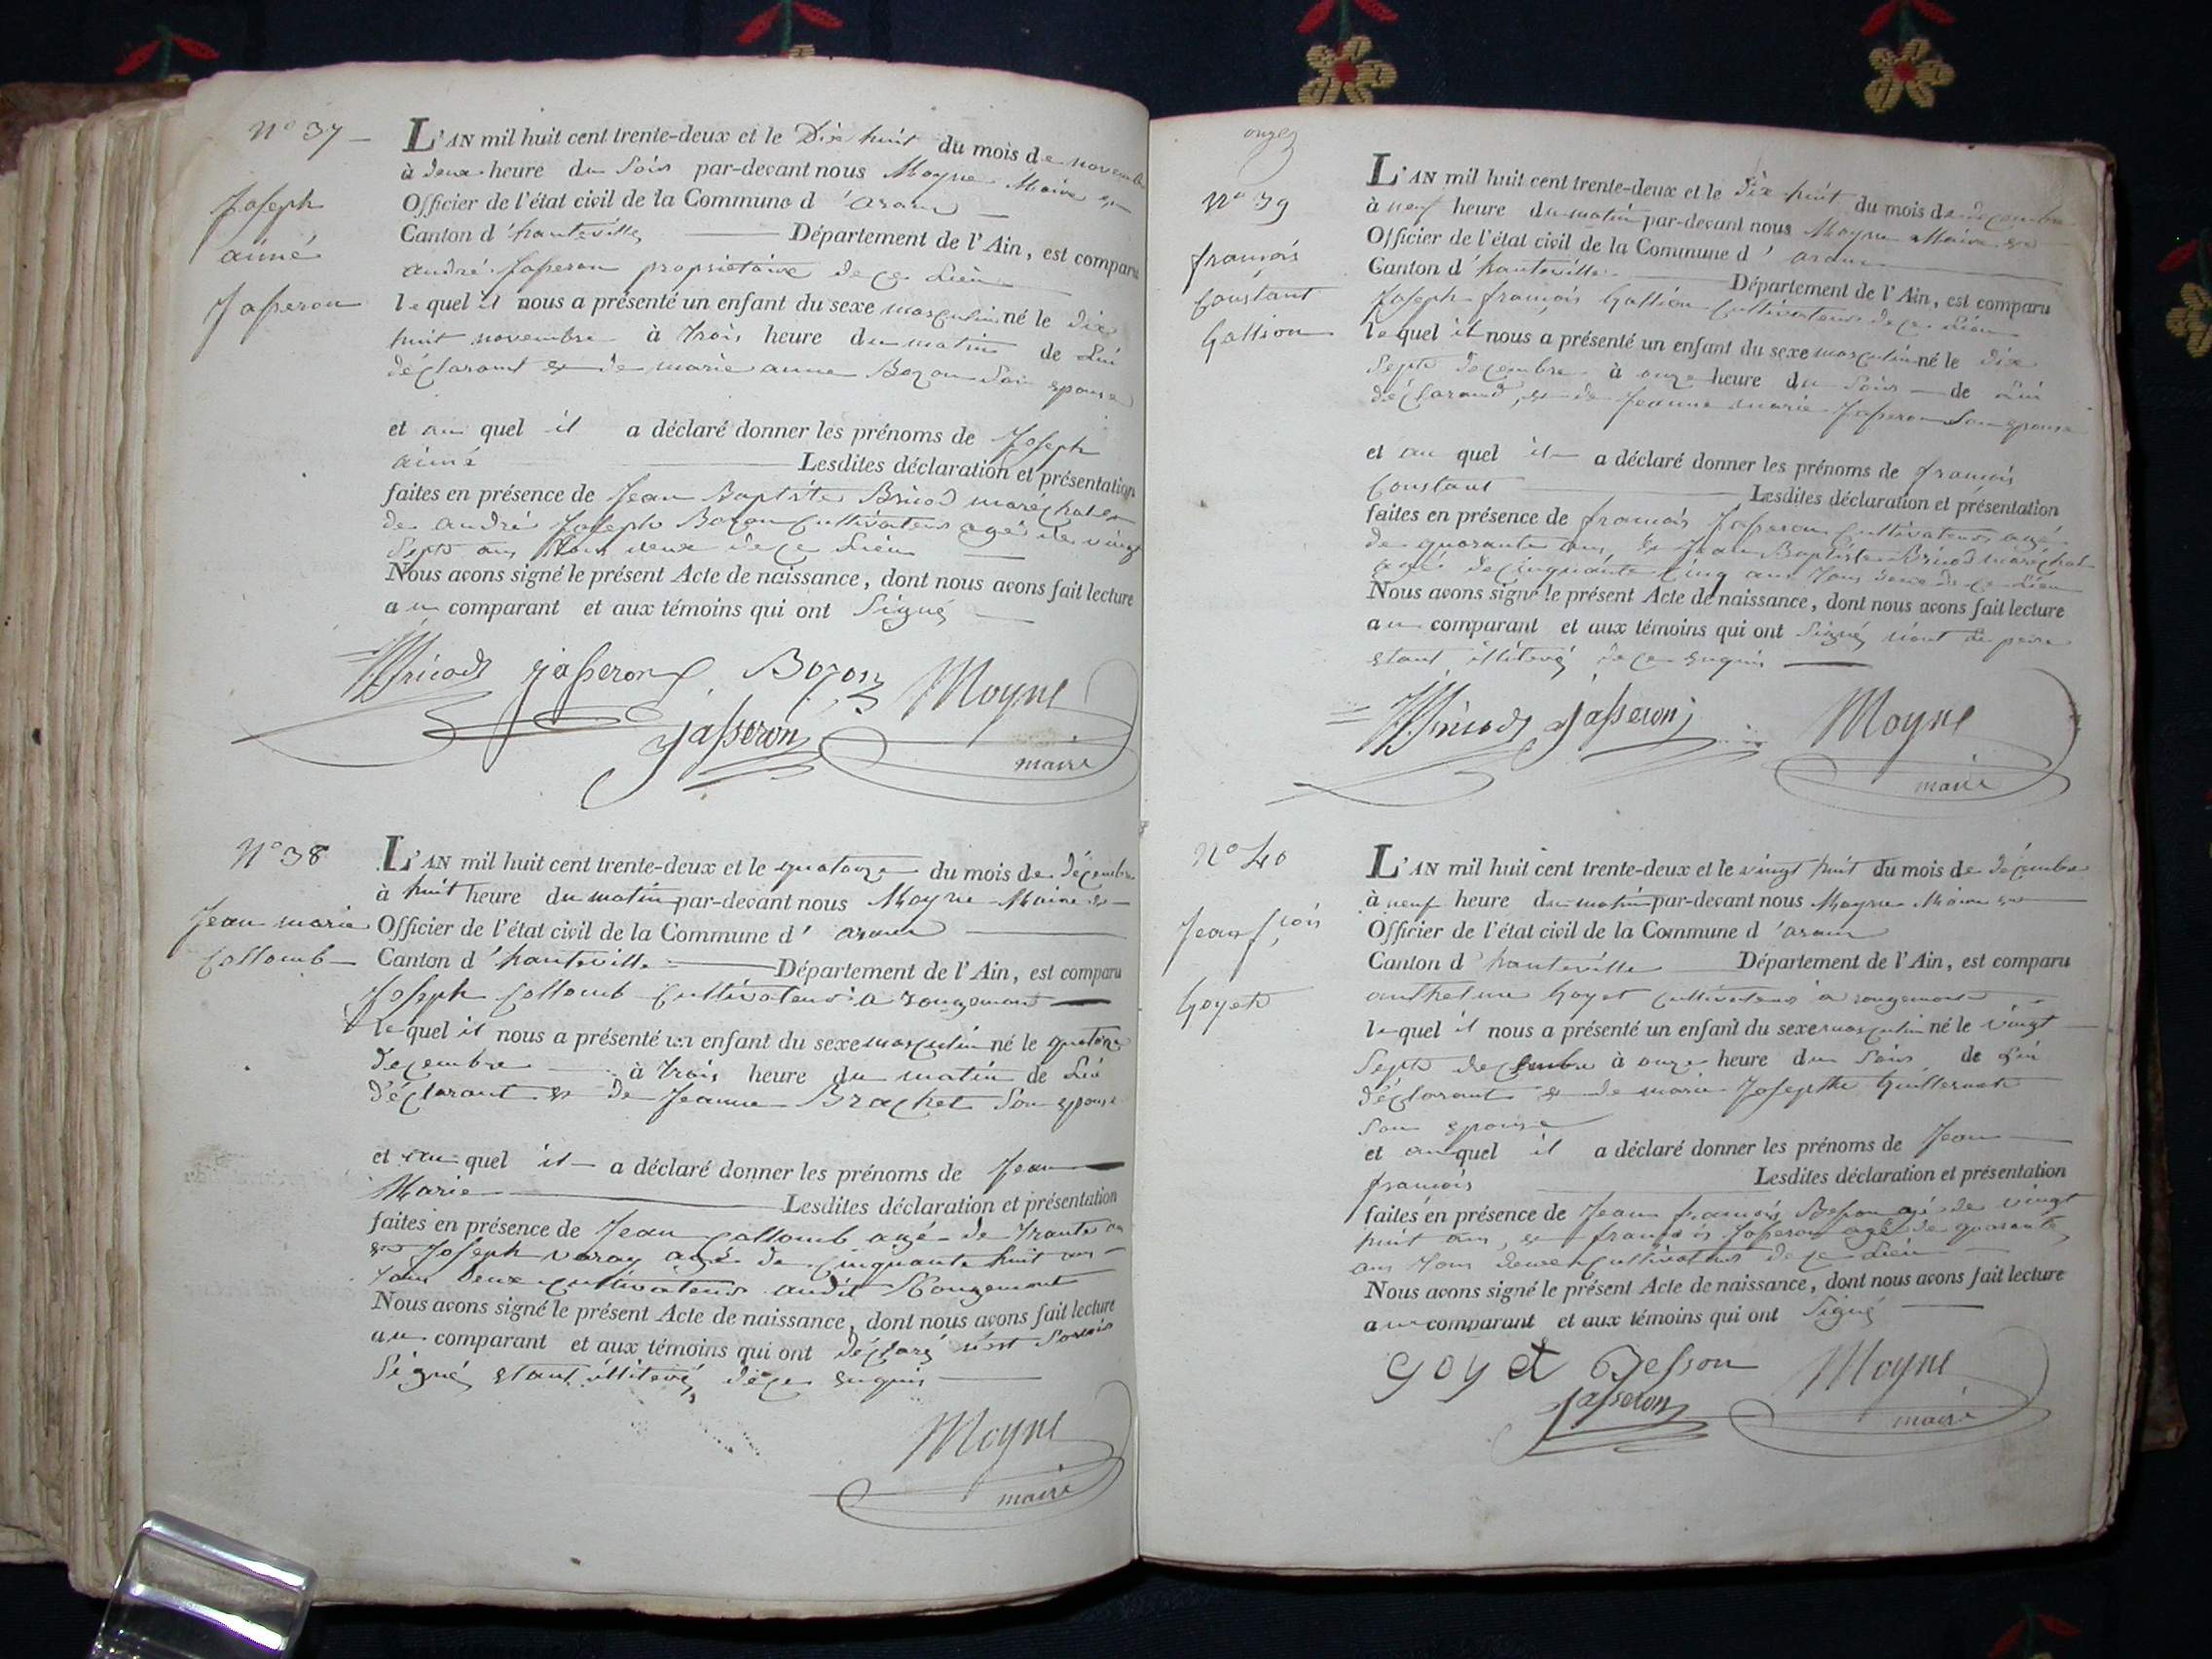 N° 37
Joseph
aimé
Jasseron
L'AN mil huit cent trente-deux et le Dix huit du mois de novembre
à deux heure du Soir par-devant nous Moyne Maire et
Officier de l'état civil de la Commune d'aranc
Canton d'hauteville Département de l'Ain, est comparu
andré Jasseron propriétaire de ce Lieu
lequel il nous a présenté un enfant du sexe masculin né le dix
huit novembre à trois heure du matin de Lui
déclarant et de marie anne Bozon Son epouse
et au quel il a déclaré donner les prénoms de Joseph
aimé Lesdites déclaration et présentation
faites en présence de Jean Baptiste Bricod maréchal et
de andré Joseph Bozon Cultivateur agé de vingt
Sept ans tous deux de ce Lieu
Nous avons signé le présent Acte de naissance, dont nous avons fait lecture
au comparant et aux témoins qui ont Signé
Bricod Jasseron Bozon Moyne
Jasseron maire
N° 38
Jean marie
Collomb
L'AN mil huit cent trente-deux et le quatorze du mois de décembre
à huit heure du matin par-devant nous Moyne Maire et
Officier de l'état civil de la Commune d'aranc
Canton d'hauteville Département de l'Ain, est comparu
Joseph Collomb Cultivateur a rougemont
lequel il nous a présenté un enfant du sexe masculin né le quatorze
decembre à trois heure du matin de Lui
déclarant et de Jeanne Brachet Son epouse
et au quel il a déclaré donner les prénoms de Jean
Marie Lesdites déclaration et présentation
faites en présence de Jean Collomb agé de trante an
et Joseph varay agé de Cinquante huit ans
tous deux Cultivateurs audit Rougemont
Nous avons signé le présent Acte de naissance, dont nous avons fait lecture
au comparant et aux témoins qui ont déclaré
Signé etant illiteré de ce enquis
Moyne
maire
onze
N° 39
francois
Constant
Gallion
L'AN mil huit cent trente-deux et le dix huit du mois de decembre
à neuf heure du matin par-devant nous Moyne Maire et
Officier de l'état civil de la Commune d'aranc
Canton d'hauteville Département de l'Ain, est comparu
Joseph francois Gallion Cultivateur de ce Lieu
lequel il nous a présenté un enfant du sexe masculin né le dix
Sept decembre à onze heure du Soir de Lui
déclarand, et de Jeanne marie Jasseron Son epouse
et au quel il a déclaré donner les prénoms de francois
Constant Lesdites déclaration et présentation
faites en présence de francois Jasseron Cultivateur agé
de quarante ans, et Jean Baptiste Bricod maréchal
agé de Cinquante Cinq ans tous deux de ce Lieu
Nous avons signé le présent Acte de naissance, dont nous avons fait lecture
au comparant et aux témoins qui ont Signé
etant illiteré de ce enquis
Bricod Jasseron Moyne
maire
N° 40
Jean fçois
Goyet
L'AN mil huit cent trente-deux et le vingt huit du mois de décembre
à neuf heure du matin par-devant nous Moyne Maire et
Officier de l'état civil de la Commune d'aranc
Canton d'hauteville Département de l'Ain, est comparu
anthelme Goyet Cultivateur a rougemont
lequel il nous a présenté un enfant du sexe masculin né le vingt
Sept decembre à onze heure du Soir de Lui
déclarant et de marie Josepthe Guillermet
Son epouse
et au quel il a déclaré donner les prénoms de Jean
francois Lesdites déclaration et présentation
faites en présence de Jean francois Besson agé de vingt
huit ans, et francois Jasseron agé de quarante
ans tous deux Cultivateurs de ce Lieu
Nous avons signé le présent Acte de naissance, dont nous avons fait lecture
au comparant et aux témoins qui ont Signé
goyet Besson Moyne
Jasseron maire